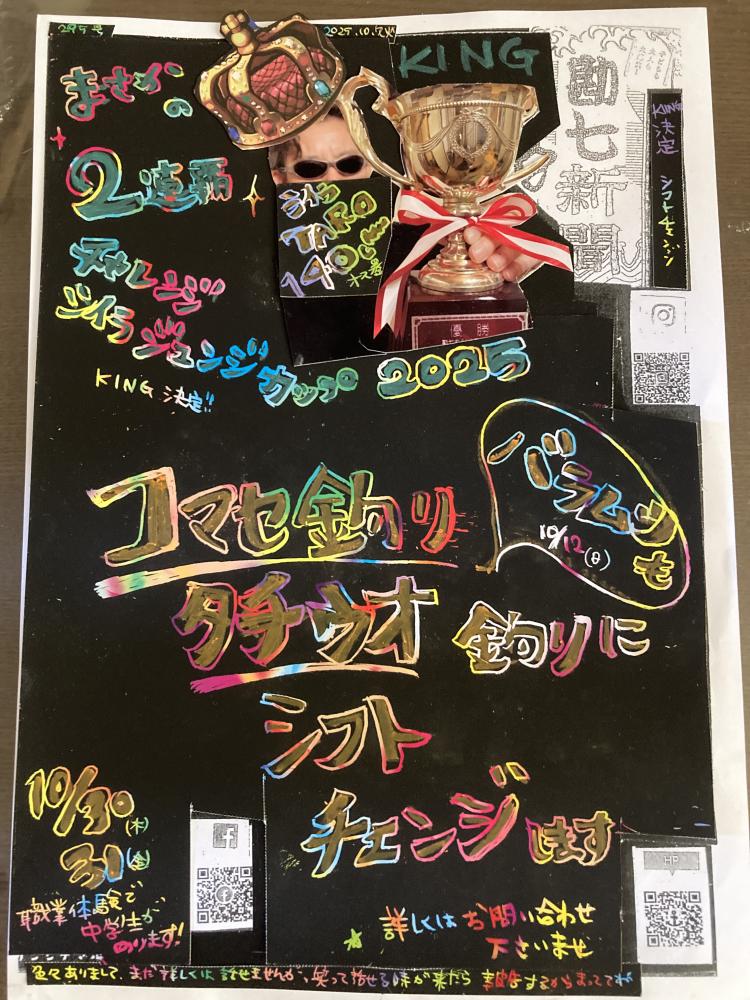 295号
2025.10.7(火)
KING
勘七新聞
KING決定
シフトチェンジ
まさかの
2連覇
チャレンジ
シイラジェンジカップ 2025
KING 決定!!
シイラ
TARO
140cm
オス
コマセ釣り
タチウオ 釣りに
シフト
チェンジします
バラムツも
10/12(日)
10/30(木)
31(金)
職業体験で
中学生が
のります!
HP
詳しくはお問い合わせ
下さいませ
色々ありまして、まだ詳しくは話せませんが、笑って話せる時が来たら 報告するからまっててね